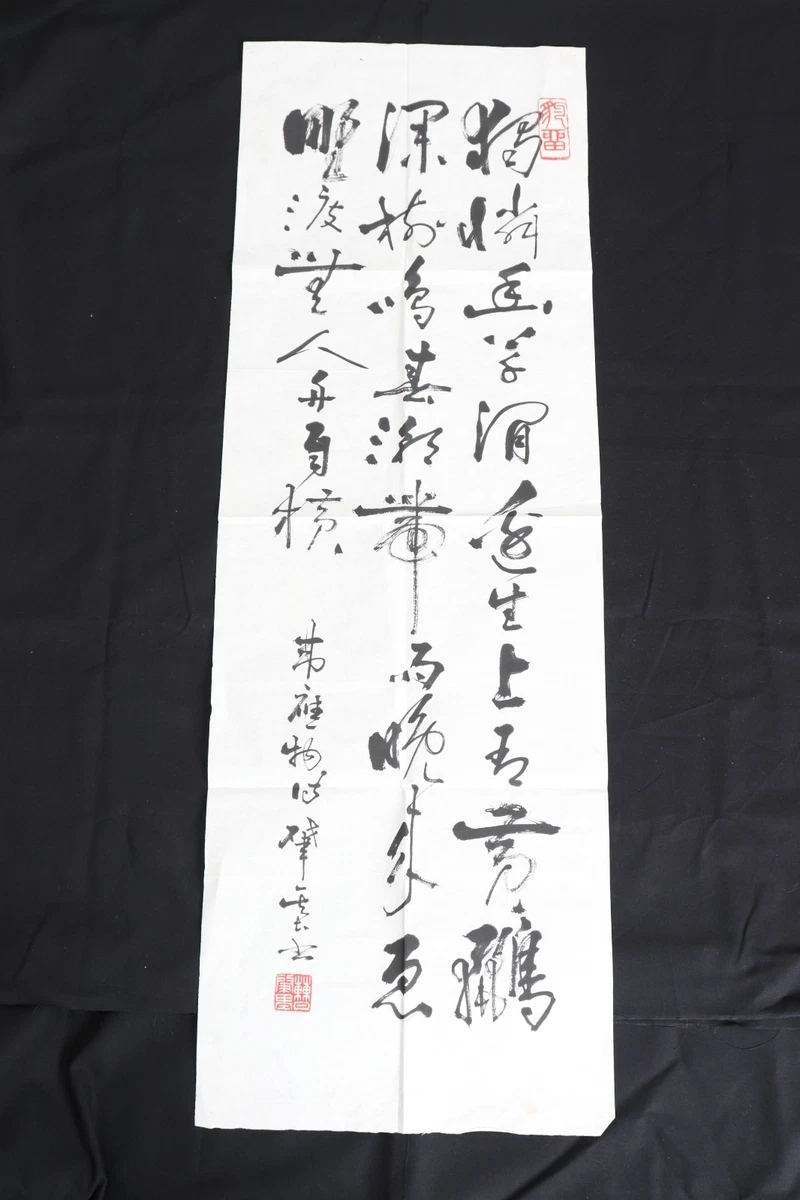 獨憐幽草澗邊生上有黃鸝
深樹鳴春潮帶雨晚來急
野渡無人舟自橫
韋應物詩 書